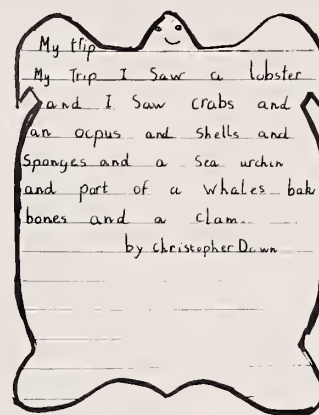 My trip
My Trip I Saw a lobster
and I Saw crabs and
an ocpus and shells and
Sponges and a Sea urchin
and part of a whales bak
bones and a clam.
by christopher Dawn